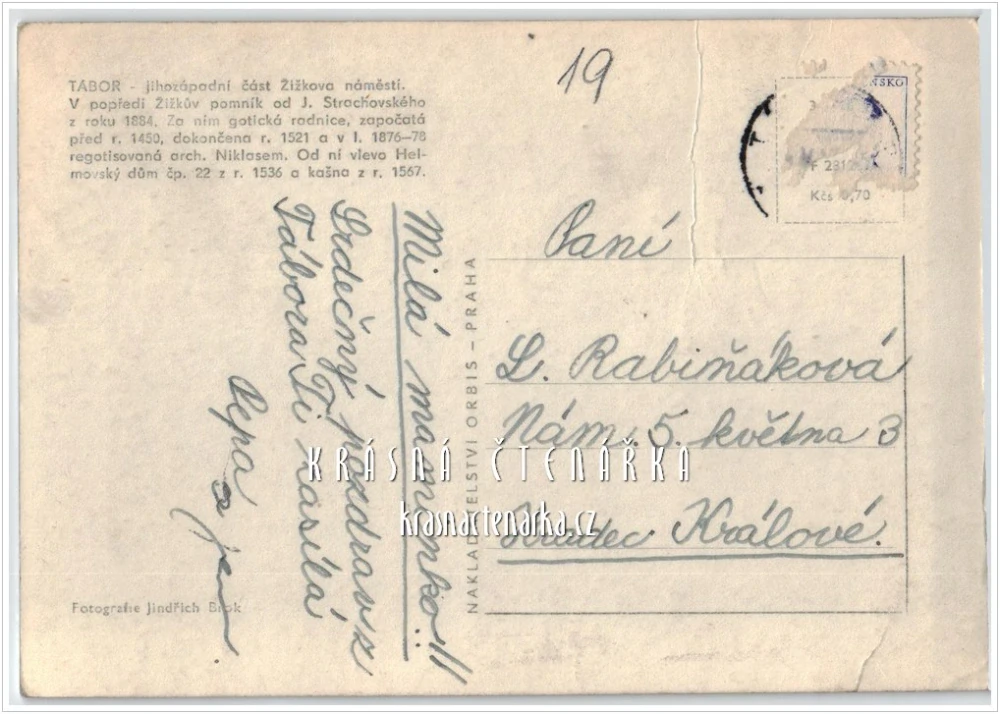 TÁBOR - jihozápadní část Žižkova náměstí.
V popředí Žižkův pomník od J. Strachovského
z roku 1884. Za ním gotická radnice, započatá
před r. 1450, dokončena r. 1521 a v l. 1876–78
regotisovaná arch. Niklasem. Od ní vlevo Hel-
movský dům čp. 22 z r. 1536 a kašna z r. 1567.
19
Kčs 0,70
Milá maminko!!
Srdečný pozdrav z
Tábora Ti zasílá
Pepa
a
NAKLADATELSTVÍ ORBIS – PRAHA
Paní
L. Rabiňáková
Nám. 5. května 3
Hradec Králové.
KRÁSNÁ ČTENÁŘKA
krasnactenarka.cz
Fotografie Jindřich Brok